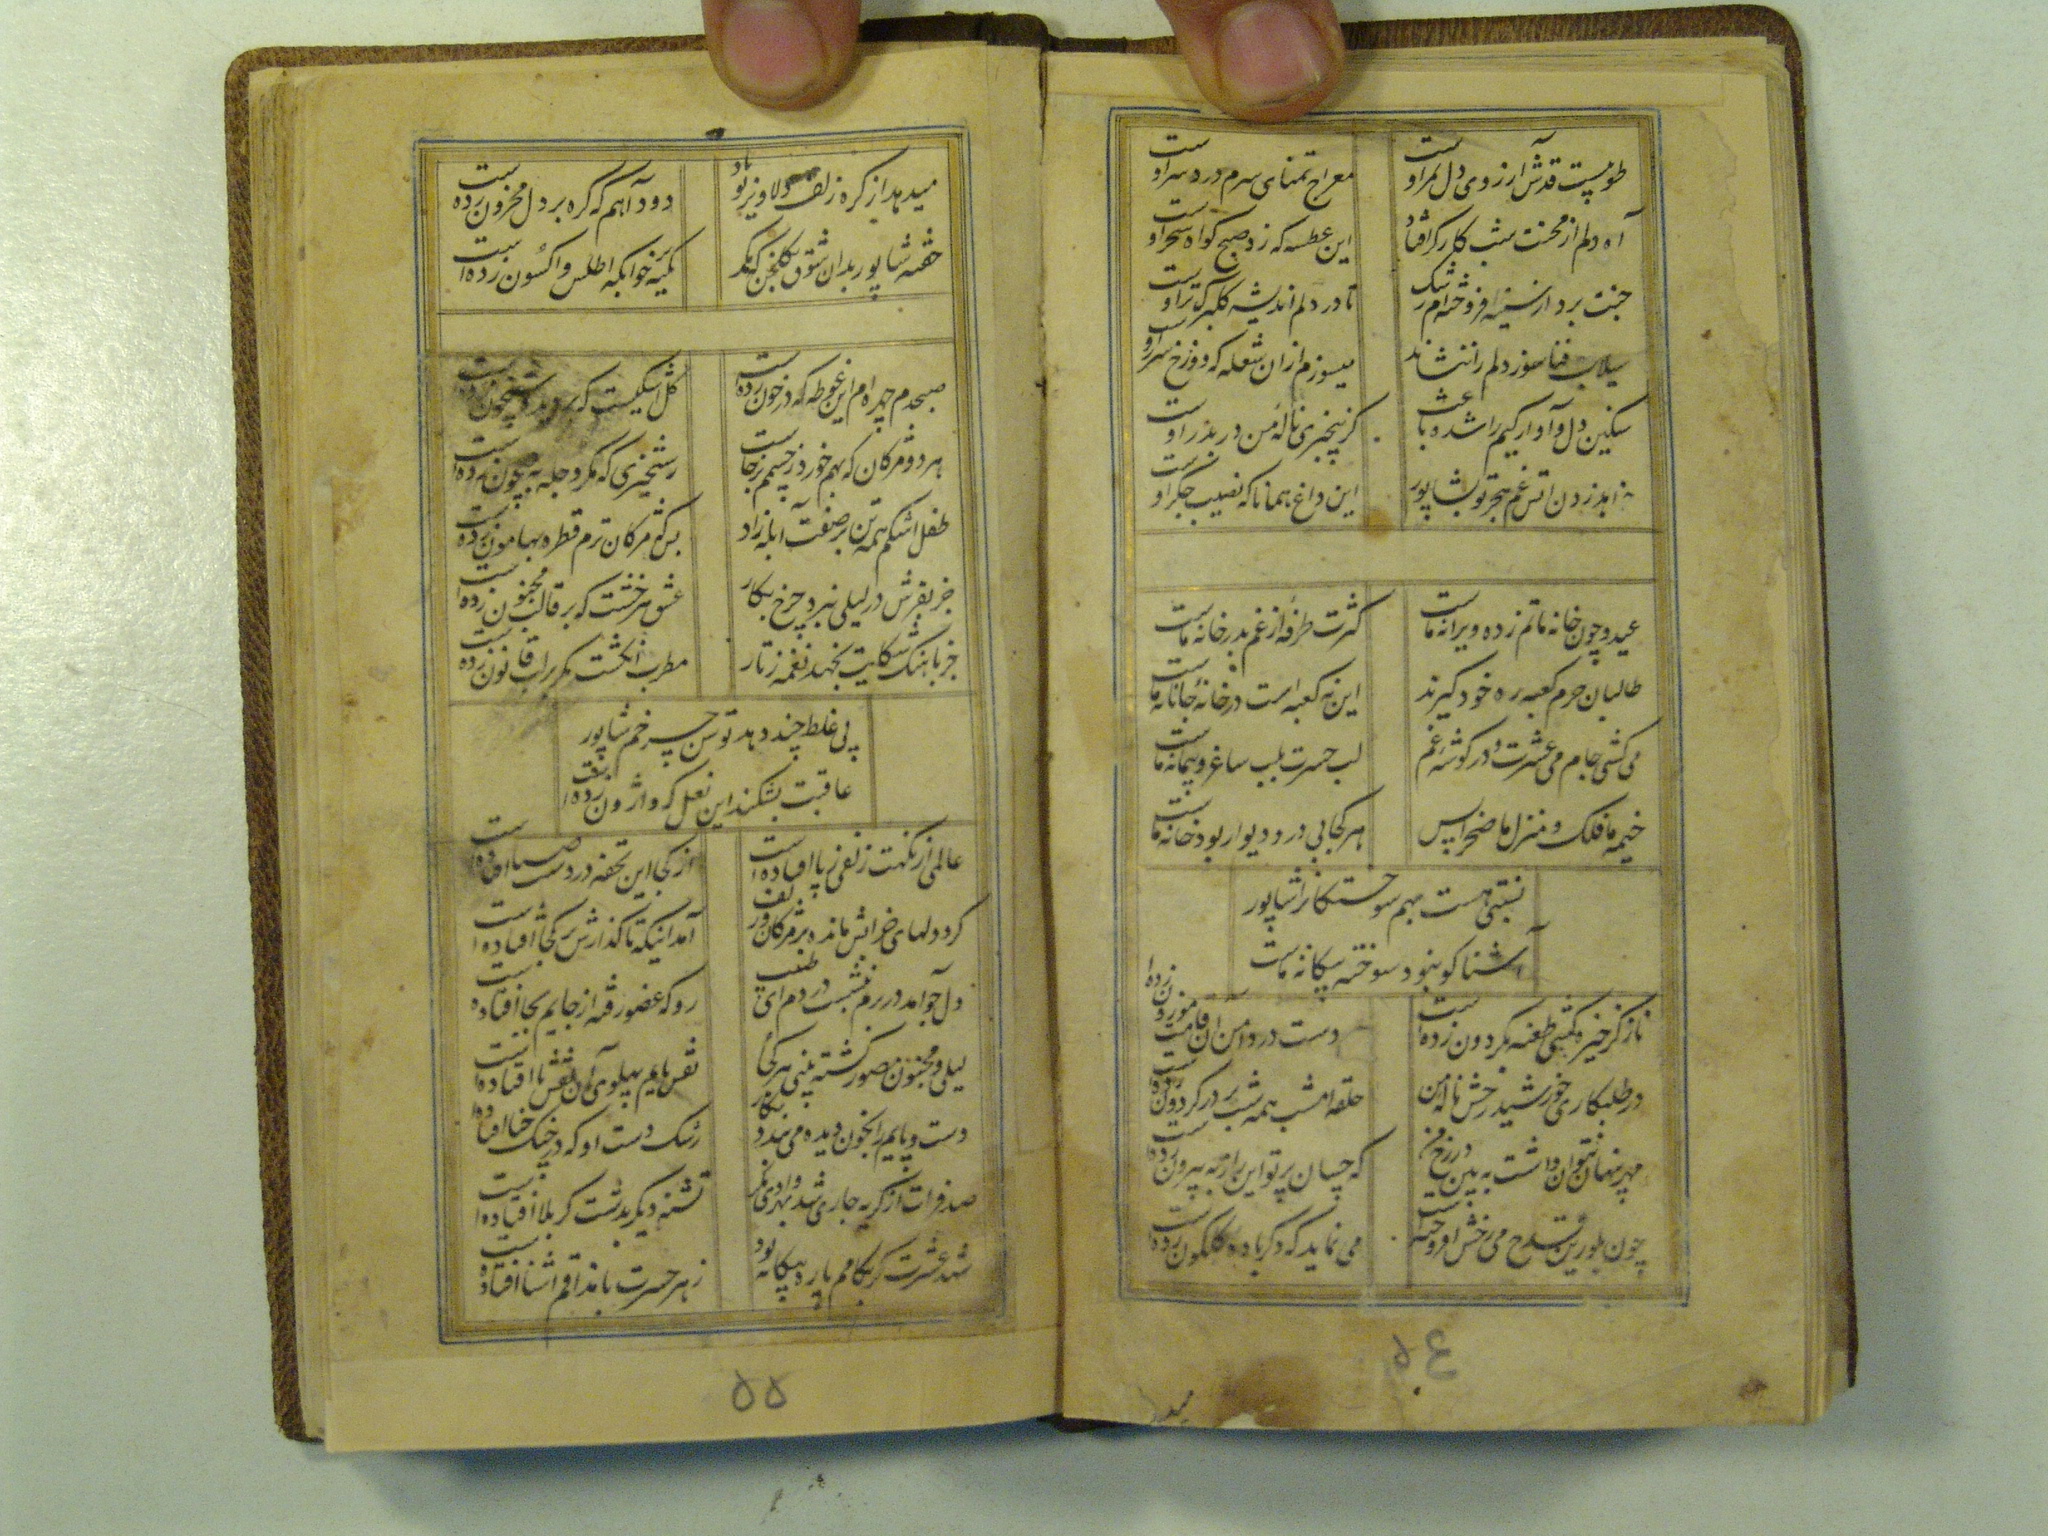 طوبیست قدش آرزوی دل ثمر اوست
معراج تمنای سرم در ره سر اوست
آه دلم از محنت شب کارگر افتاد
این عطسه که زد صبح گواه سحر اوست
جنت بر دار سینه افروخته‌ام رشک
تا در دلم اندیشهٔ گلبرگ تر اوست
سیلاب فنا سوز دلم را ننشاند
میسوزم ازان شعله که دوزخ شرر اوست
سنگین دل و آوارگیم را شده باعث
کز بیخبری نالهٔ من در بدر اوست
زد آتش غم هجر تو بشاپور
این داغ همانا که نصیب جگر اوست
عید و چون خانه ماتم زده ویرانه ماست
کثرت طرفه از غم بدر خانه ماست
طالبان حرم کعبه ره خود گیرند
این نه کعبه است در خانهٔ جانانه ماست
می کشی جام می عشرت و در گوشهٔ غم
لب حسرت بلب ساغر و پیمانه ماست
خیمه ما فلک و منزل ما صحرا بس
هر کجا بی در و دیوار بود خانه ماست
نسبتی هست بهم سوختگانرا شاپور
آشنا کو نبود سوخته بیگانه ماست
ناز کز خیره کشی طعنه بگردون زده است
دست در دامن آن قامت موزون زده است
در طلبکاری خورشید رخش نالهٔ من
حلقه امشب همه شب بر در گردون زده است
مهر پنهان نتوان داشت ببین در رخ من
که چسان پرتو این راز به بیرون زده است
چون بلورین قدح می رخش افروخته است
می نماید که دگر باده گلگون زده است
میدهد از گره زلف دلاویز تو یاد
دود آهم که گره بر دل محزون زده است
خفته شاپور بدان شوق بگلخن که مگر
تکیه بر خوابگه اطلس و اکسون زده است
صبحدم چهره‌ام این غوطه که در خون زده است
گل اشکیست که بر دیده شبیخون زده است
هر دو مژگان که بهم خورد ز چشمم برجاست
رستخیزی که مگر دجله به جیحون زده است
طفل اشکم همه تن بر صفت آبله زاد
بس که مژگان ترم قطره بهامون زده است
جز بفرش در لیلی نبرد چرخ بکار
عشق هر خشت که بر قالب مجنون زده است
جز باهنگ شکایت نجهد نغمه ز تار
مطرب انگشت مگر بر لب قانون زده است
پی غلط چند دهد توسن چرخم شاپور
عاقبت بشکند این نعل که واژون زده است
عالمی از نکهت زلفی ز پا افتاده است
از کجا این تحفه در دست صبا افتاده است
گرد دلهای خرابش مانده بر مژگان و زلف
آمد اینک تا گذارش بر کجا افتاده است
دل چو آمد در برم ننشست در دم ای طبیب
رو که عضو رفته از جایم بجا افتاده است
لیلی و مجنون مصور گشته بینی هر کجا
نقش مایم پهلوی آن نقش پا افتاده است
دست و پایم را بخون دیده می بندد نگار
رشک دست او که در چنگ حنا افتاده است
صد فرات از گریه جاری شد بهر وادی مگر
تشنه دیگر بدشت کربلا افتاده است
شهد عشرت گر بکامم پاره بیگانه بود
زهر حسرت با مذاقم آشنا افتاده است
۵۵
۵۴
میدهد